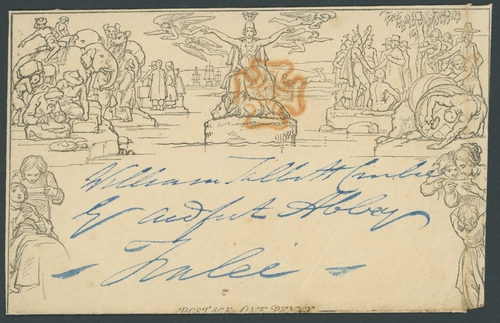 William Talbot Crosbie
Esq Ardfert Abbey
- Tralee -
POSTAGE ONE PENNY